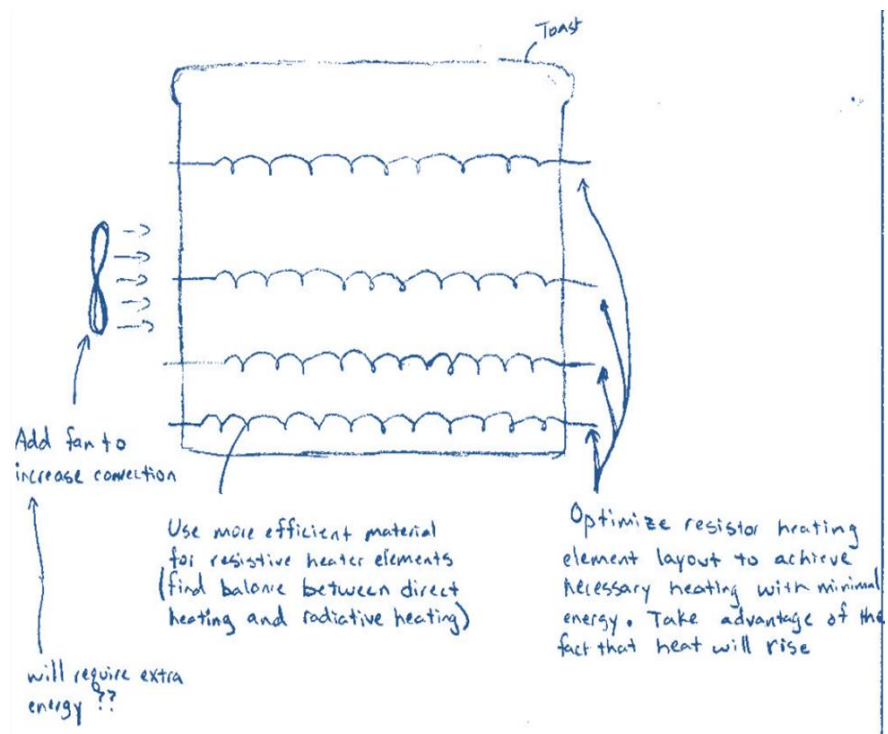 Toast
Add fan to
increase convection
will require extra
energy ??
Use more efficient material
for resistive heater elements
(find balance between direct
heating and radiative heating)
Optimize resistor heating
element layout to achieve
necessary heating with minimal
energy. Take advantage of the
fact that heat will rise